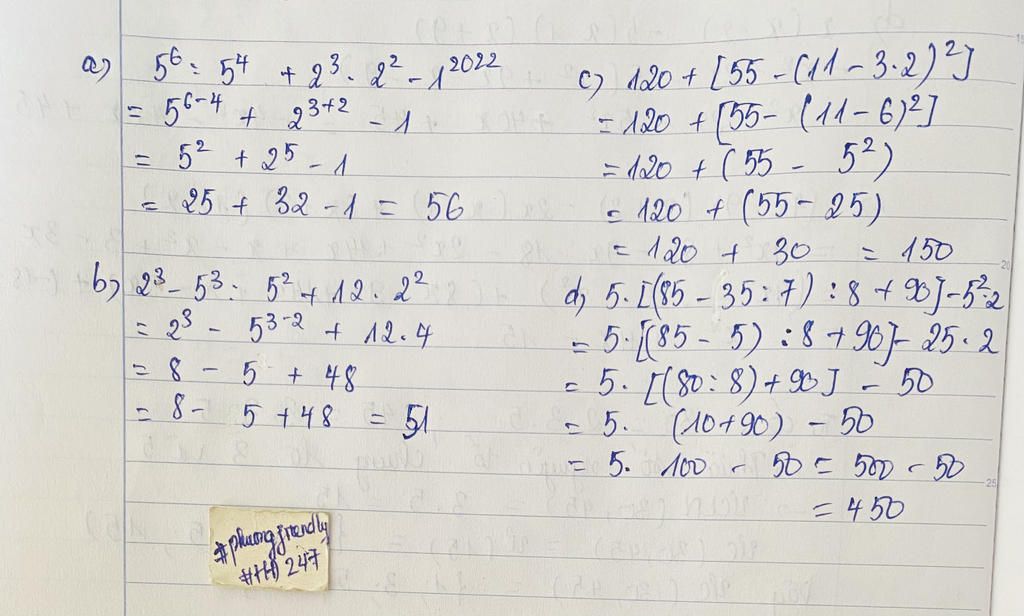 a) 5⁶ : 5⁴ + 2³ . 2² - 1²⁰²²
= 5⁶⁻⁴ + 2³⁺² - 1
= 5² + 2⁵ - 1
= 25 + 32 - 1 = 56
b) 2³ - 5³ : 5² + 12 . 2²
= 2³ - 5³⁻² + 12 . 4
= 8 - 5 + 48
= 8 - 5 + 48 = 51
c) 120 + [55 - (11 - 3.2)²]
= 120 + [55 - (11 - 6)²]
= 120 + (55 - 5²)
= 120 + (55 - 25)
= 120 + 30 = 150
d) 5. [(85 - 35 : 7) : 8 + 90] - 5².2
= 5. [(85 - 5) : 8 + 90] - 25 . 2
= 5. [(80 : 8) + 90] - 50
= 5. (10 + 90) - 50
= 5. 100 - 50 = 500 - 50
= 450
#phuongfriendly
247